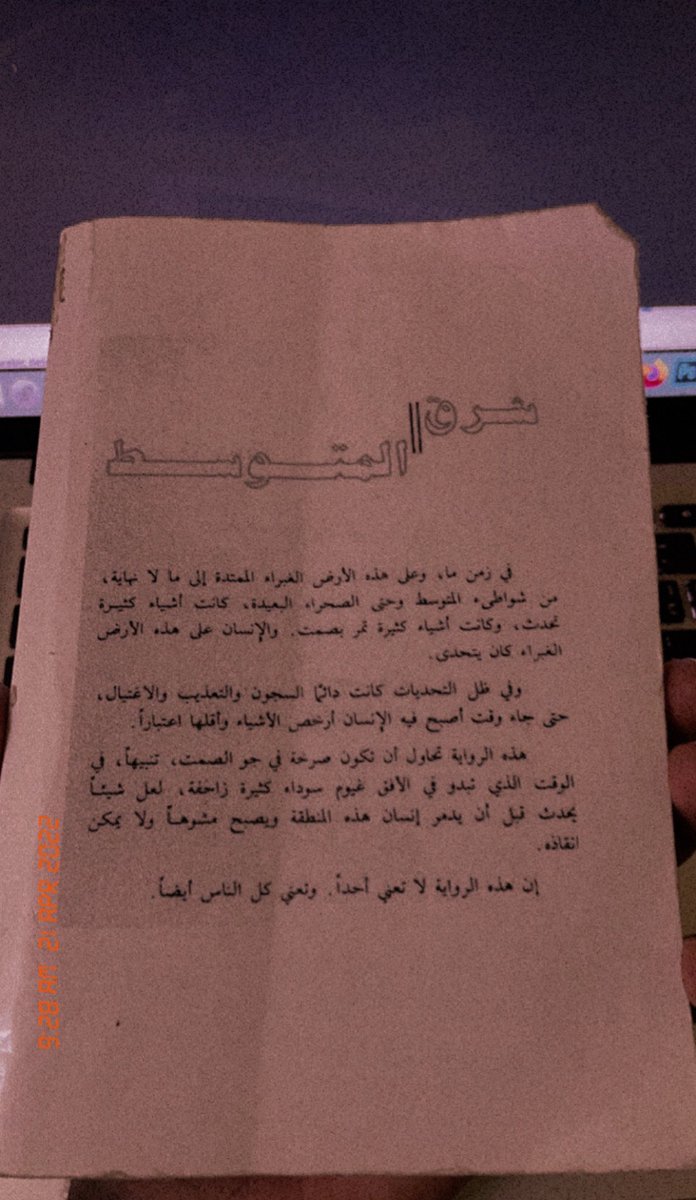 شرق
المتوسط
في زمن ما، وعلى هذه الأرض الغبراء الممتدة إلى ما لا نهاية،
من شواطىء المتوسط وحتى الصحراء البعيدة، كانت أشياء كثيرة
تحدث، وكانت أشياء كثيرة تمر بصمت. والإنسان على هذه الأرض
الغبراء كان يتحدى.
وفي ظل التحديات كانت دائماً السجون والتعذيب والاغتيال،
حتى جاء وقت أصبح فيه الإنسان أرخص الأشياء وأقلها اعتباراً.
هذه الرواية تحاول أن تكون صرخة في جو الصمت، تنبيهاً، في
الوقت الذي تبدو في الأفق غيوم سوداء كثيرة زاحفة، لعل شيئاً
يحدث قبل أن يدمر إنسان هذه المنطقة ويصبح مشوهاً ولا يمكن
انقاذه.
إن هذه الرواية لا تعني أحداً. وتعني كل الناس أيضاً.
9:28 AM 21 APR 2022